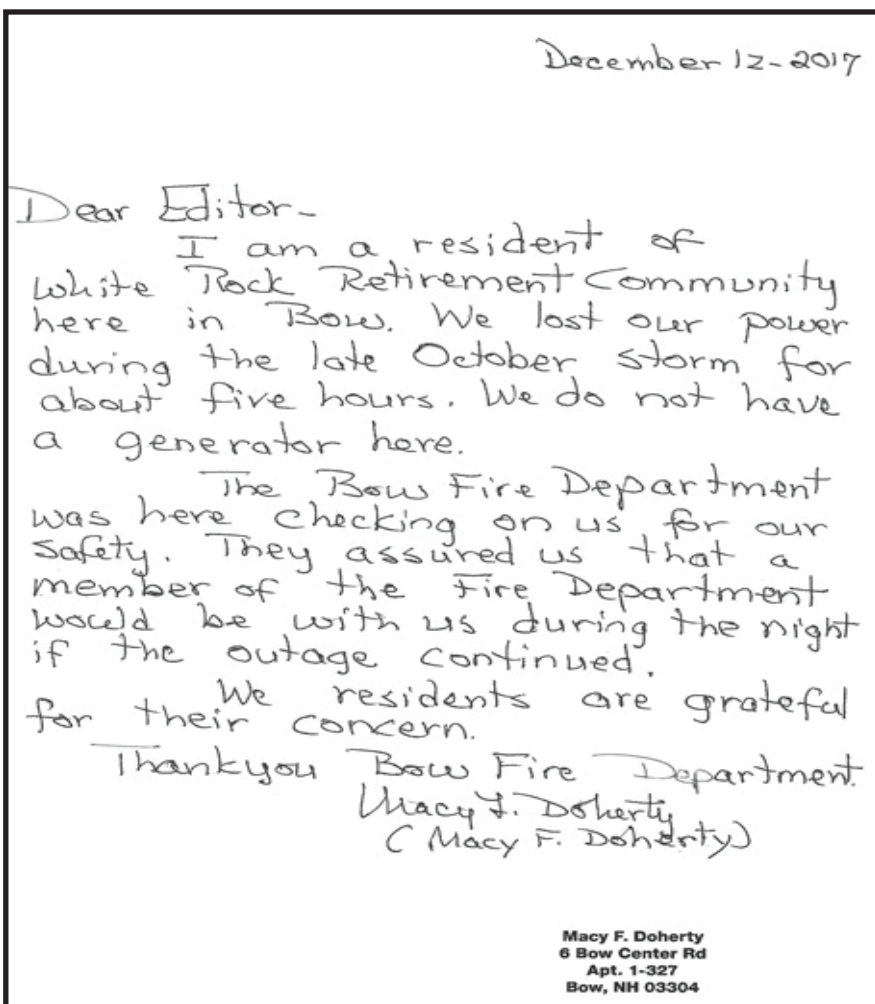 December 12-2017
Dear Editor-
I am a resident of
White Rock Retirement Community
here in Bow. We lost our power
during the late October storm for
about five hours. We do not have
a generator here.
The Bow Fire Department
was here checking on us for our
safety. They assured us that a
member of the Fire Department
would be with us during the night
if the outage continued.
We residents are grateful
for their concern.
Thankyou Bow Fire Department.
Macy F. Doherty
(Macy F. Doherty)
Macy F. Doherty
6 Bow Center Rd
Apt. 1-327
Bow, NH 03304